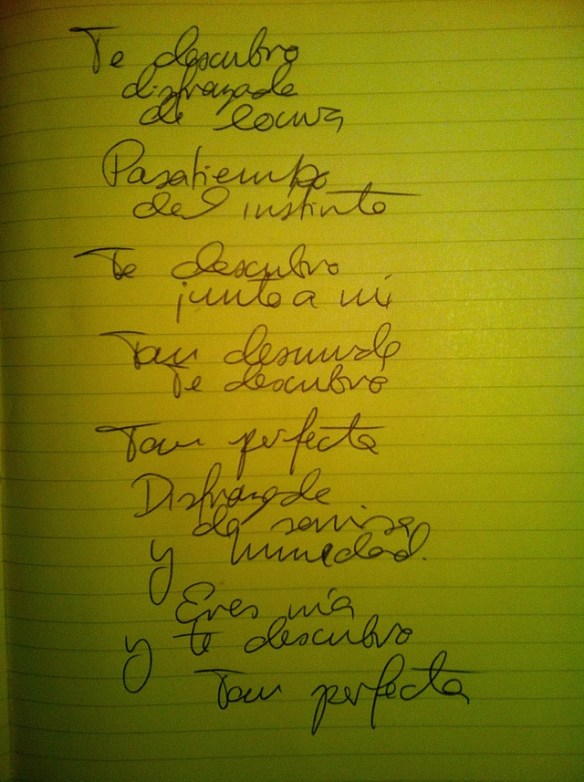 Te descubro
disfrazada
de locura
Pasatiempo
del instinto
Te descubro
junto a mi
Tan desnuda
Te descubro
Tan perfecta
Disfrazada
de sonrisa
y humedad.
Eres mía
y te descubro
Tan perfecta